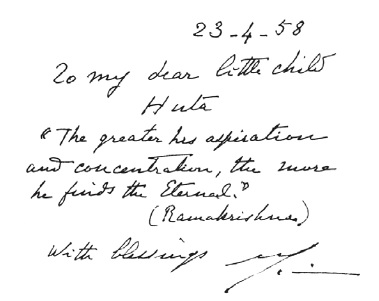 23-4-58
To my dear little child
Huta
"The greater his aspiration
and concentration, the more
he finds the Eternal."
(Ramakrishna)
With blessings